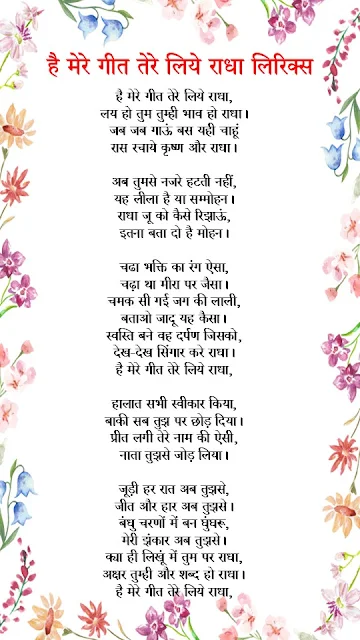 है मेरे गीत तेरे लिये राधा लिरिक्स
है मेरे गीत तेरे लिये राधा,
लय हो तुम तुम्ही भाव हो राधा।
जब जब गाऊं बस यही चाहूं
रास रचाये कृष्ण और राधा।
अब तुमसे नजरे हटती नहीं,
यह लीला है या सम्मोहन।
राधा जू को कैसे रिझाऊं,
इतना बता दो है मोहन।
चढा भक्ति का रंग ऐसा,
चढ़ा था मीरा पर जैसा।
चमक सी गई जग की लाली,
बताओ जादू यह कैसा।
स्वस्ति बने वह दर्पण जिसको,
देख-देख सिंगार करे राधा।
है मेरे गीत तेरे लिये राधा,
हालात सभी स्वीकार किया,
बाकी सब तुझ पर छोड़ दिया।
प्रीत लगी तेरे नाम की ऐसी,
नाता तुझसे जोड़ लिया।
जूड़ी हर रात अब तुझसे,
जीत और हार अब तुझसे।
बंधु चरणों में बन घुंघरू,
मेरी झंकार अब तुझसे।
क्या ही लिखूं में तुम पर राधा,
अक्षर तुम्ही और शब्द हो राधा।
है मेरे गीत तेरे लिये राधा,